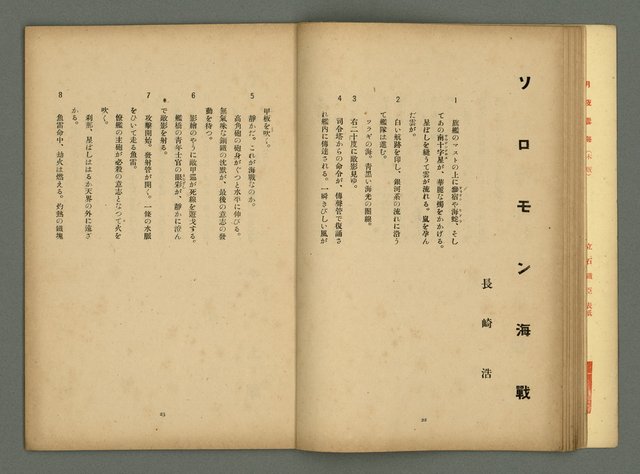 ソロモン海戰
長崎浩
1
旗艦のマストの上に參宿や海蛇、そし
てあの南十字星が、華麗な燭をかかげる。
星ばしを縫うて雲が流れる。嵐を孕ん
だ雲が。
2
白い航跡を印し、銀河系の流れに沿う
て艦隊は進む。
3
ツラギの海。青黑い海光の圈線。
右二十度に敵影見ゆ。
4
司令塔からの命令が、傳聲管で復誦さ
れ艦内に傳達される。一瞬きびしい風が
28
甲板を吹く。
5
靜かだ。これが海戰なのか。
高角砲の砲身がぐつと水平に伸びる。
無氣味な鋼鐵の沈默が、最後の意志の發
動を待つ。
6
影繪のやうに敵甲巡が死線を遊弋する。
艦橋の青年士官の眼彩が、靜かに澄ん
で敵影を射る。
7
攻擊開始。發射管が開く。一條の水脈
をひいて走る魚雷。
僚艦の主砲が必殺の意志となつて火を
吹く。
刹那、星ばしははるか天界の外に遠ざ
かる。
8
魚雷命中、劫火は燃える。灼熱の鐵塊
立石鐵臣表紙